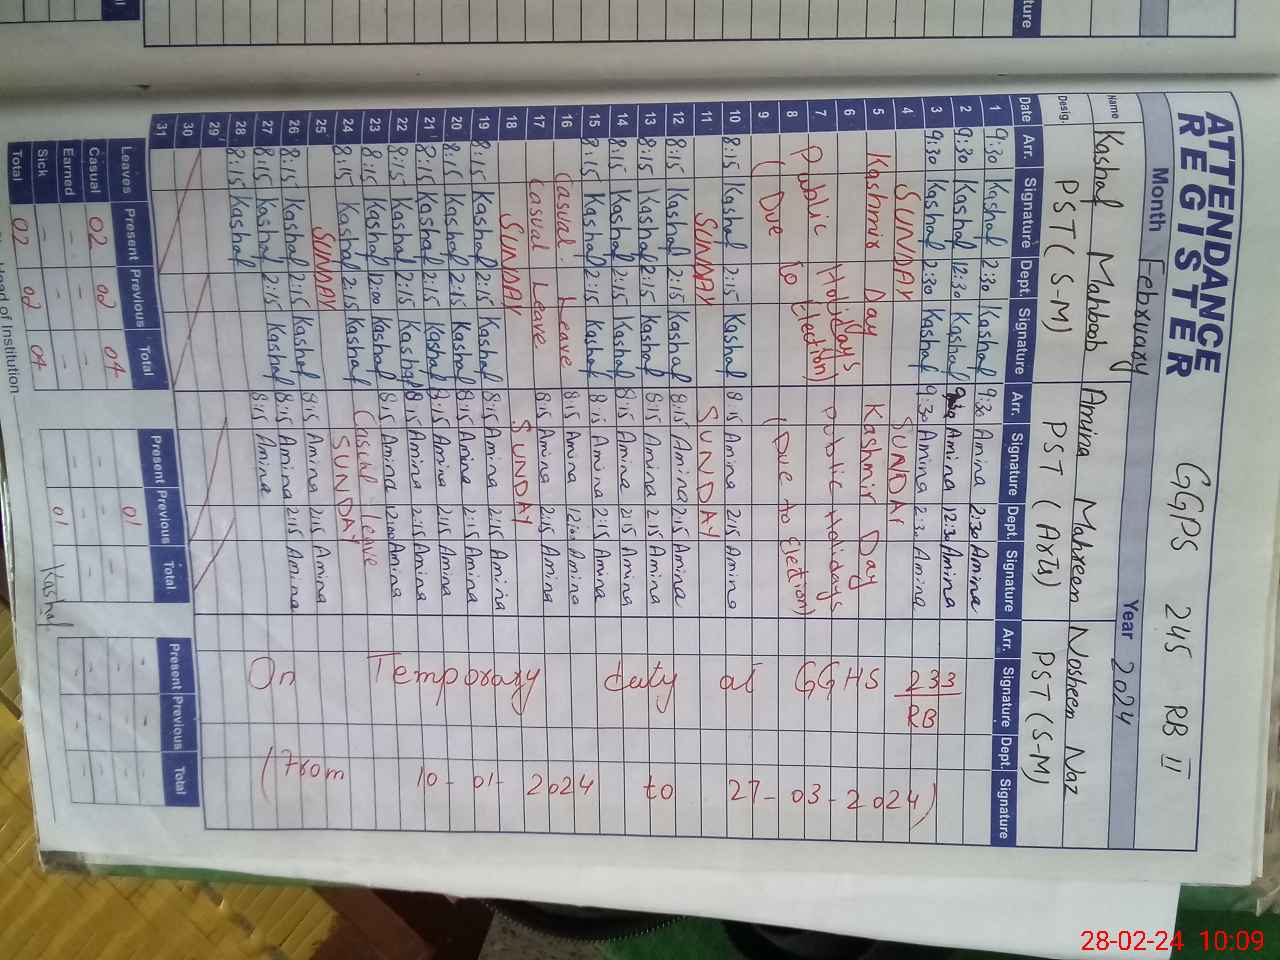 ATTENDANCE REGISTER
GGPS 245 RB II
Month February Year 2024
Name Kashaf Mahboob Amina Mahreen Nosheen Naz
Desig. PST (S-M) PST (Arts) PST (S-M)
Date Arr. Signature Dept. Signature Arr. Signature Dept. Signature Arr. Signature Dept. Signature
1 9:30 Kashaf 2:30 Kashaf 9:30 Amina 2:30 Amina
2 9:30 Kashaf 12:30 Kashaf 9:30 Amina 12:30 Amina
3 9:30 Kashaf 2:30 Kashaf 9:30 Amina 2:30 Amina
4 SUNDAY SUNDAY
5 Kashmir Day Kashmir Day
6
7 Public Holidays Public Holidays
8 (Due to Election) (Due to Election)
9
10 8:15 Kashaf 2:15 Kashaf 8:15 Amina 2:15 Amina
11 SUNDAY SUNDAY
12 8:15 Kashaf 2:15 Kashaf 8:15 Amina 2:15 Amina
13 8:15 Kashaf 2:15 Kashaf 8:15 Amina 2:15 Amina
14 8:15 Kashaf 2:15 Kashaf 8:15 Amina 2:15 Amina
15 8:15 Kashaf 2:15 Kashaf 8:15 Amina 2:15 Amina
16 Casual Leave 8:15 Amina 12:00 Amina
17 Casual Leave 8:15 Amina 2:15 Amina
18 SUNDAY SUNDAY
19 8:15 Kashaf 2:15 Kashaf 8:15 Amina 2:15 Amina
20 8:15 Kashaf 2:15 Kashaf 8:15 Amina 2:15 Amina
21 8:15 Kashaf 2:15 Kashaf 8:15 Amina 2:15 Amina
22 8:15 Kashaf 2:15 Kashaf 8:15 Amina 2:15 Amina
23 8:15 Kashaf 12:00 Kashaf 8:15 Amina 12:00 Amina
24 8:15 Kashaf 2:15 Kashaf Casual Leave
25 SUNDAY SUNDAY
26 8:15 Kashaf 2:15 Kashaf 8:15 Amina 2:15 Amina
27 8:15 Kashaf 2:15 Kashaf 8:15 Amina 2:15 Amina
28 8:15 Kashaf 8:15 Amina
29
30
31
On Temporary duty at GGHS 233/RB
(From 10-01-2024 to 27-03-2024)
Leaves Present Previous Total Present Previous Total Present Previous Total
Casual 02 02 04 - 01 - - - -
Earned - - - - - - - - -
Sick - - - - - - - - -
Total 02 02 04 - 01 - - -
Kashaf
Head of Institution
ture
ture
28-02-24 10:09